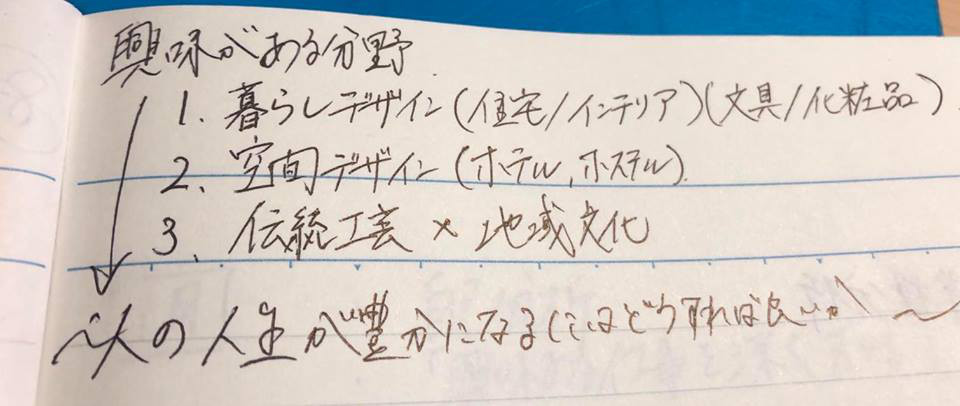 興味がある分野
1. 暮らしデザイン(住宅/インテリア)(文具/化粧品)
2. 空間デザイン(ホテル,ホステル)
3. 伝統工芸×地域文化
〜人の人生が豊かになるにはどうすれば良いか〜